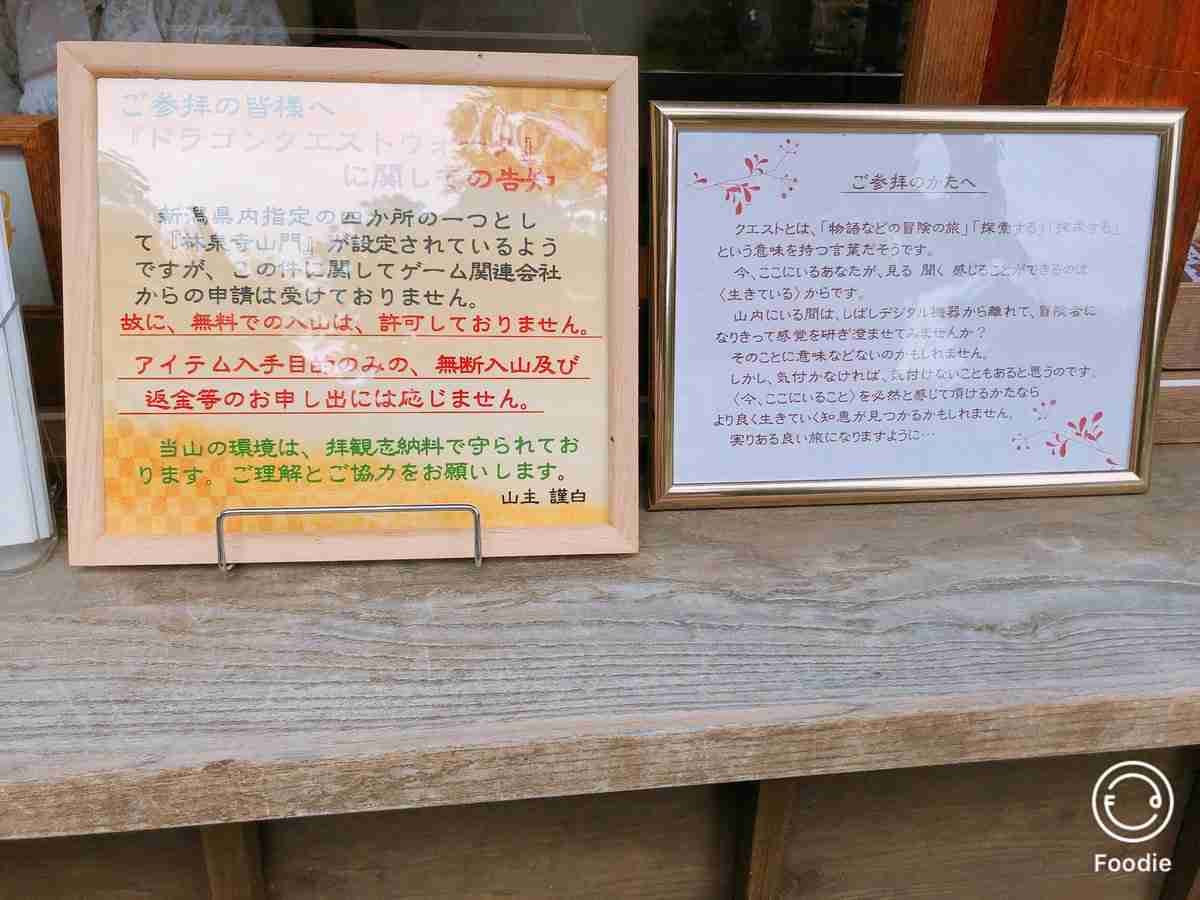 ご参拝の皆様へ
『ドラゴンクエストウォーク』
に関しての告知
新潟県内指定の四か所の一つとし
て『林泉寺山門』が設定されているよう
ですが、この件に関してゲーム関連会社
からの申請は受けておりません。
故に、無料での入山は、許可しておりません。
アイテム入手目的のみの、無断入山及び
返金等のお申し出には応じません。
当山の環境は、拝観志納料で守られてお
ります。ご理解とご協力をお願いします。
山主 謹白
ご参拝のかたへ
クエストとは、「物語などの冒険の旅」「探索する」「探求する」
という意味を持つ言葉だそうです。
今、ここにいるあなたが、見る 聞く 感じることができるのは
〈生きている〉からです。
山内にいる間は、しばしデジタル機器から離れて、冒険者に
なりきって感覚を研ぎ澄ませてみませんか?
そのことに意味などないのかもしれません。
しかし、気付かなければ、気付けないこともあると思うのです。
〈今、ここにいること〉を必然と感じて頂けるかたなら
より良く生きていく知恵が見つかるかもしれません。
実りある良い旅になりますように…
Foodie